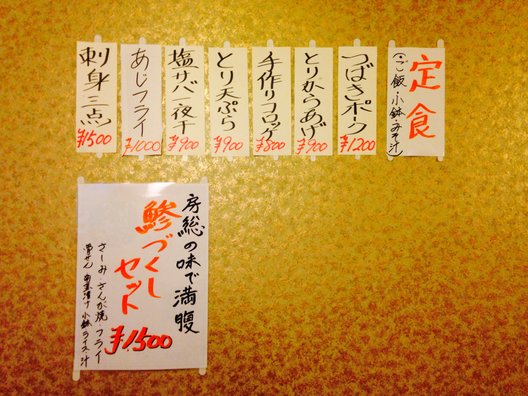 定食
(・ご飯・小鉢・みそ汁)
つばきポーク
¥1200
とりからあげ
¥900
手作りコロッケ
¥800
とり天ぷら
¥900
塩サバ一夜干
¥900
あじフライ
¥1000
刺身三点
¥1500
房総の味で満腹
鯵づくし
セット
¥1,500
さしみ さんが焼・フライ
小鉢 ライス・汁